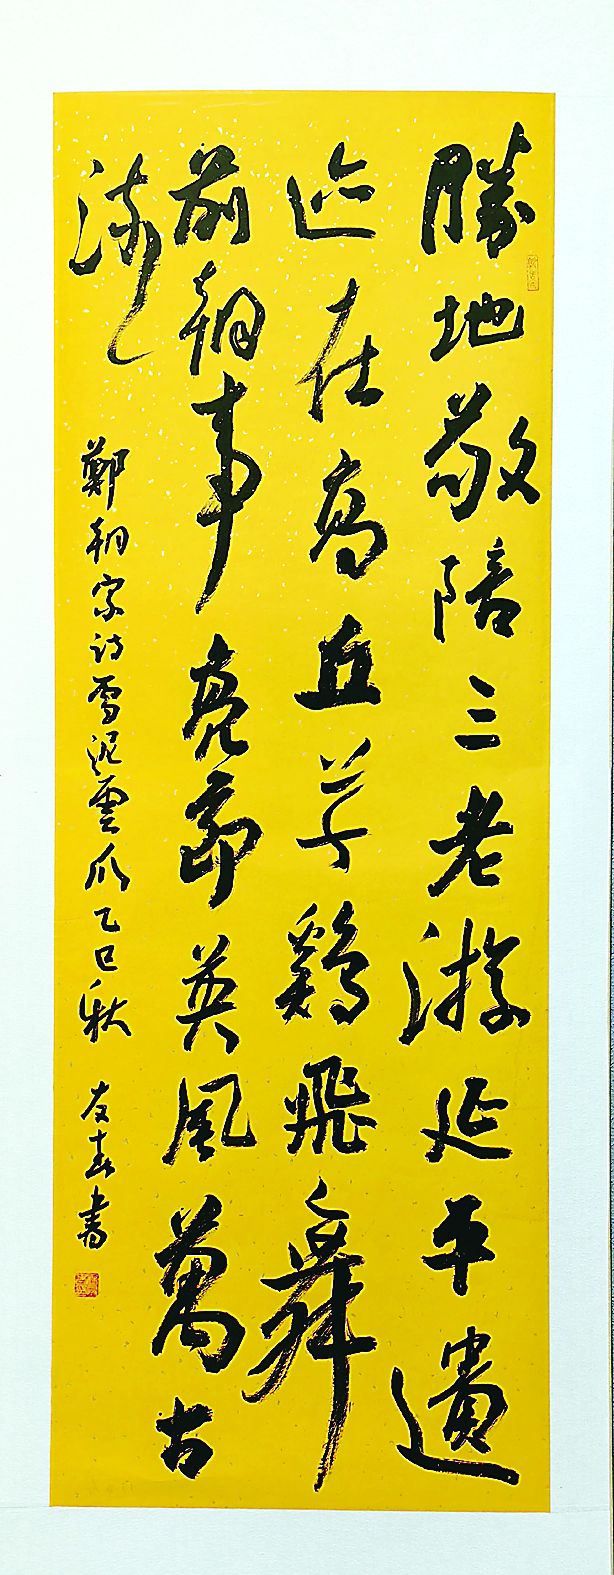 勝地敬陪三老游延平遺
迹在高丘草鷄飛舞
前朝事亮節英風萬古
流
鄭朝宗诗雪泥雲爪乙巳秋 友春書